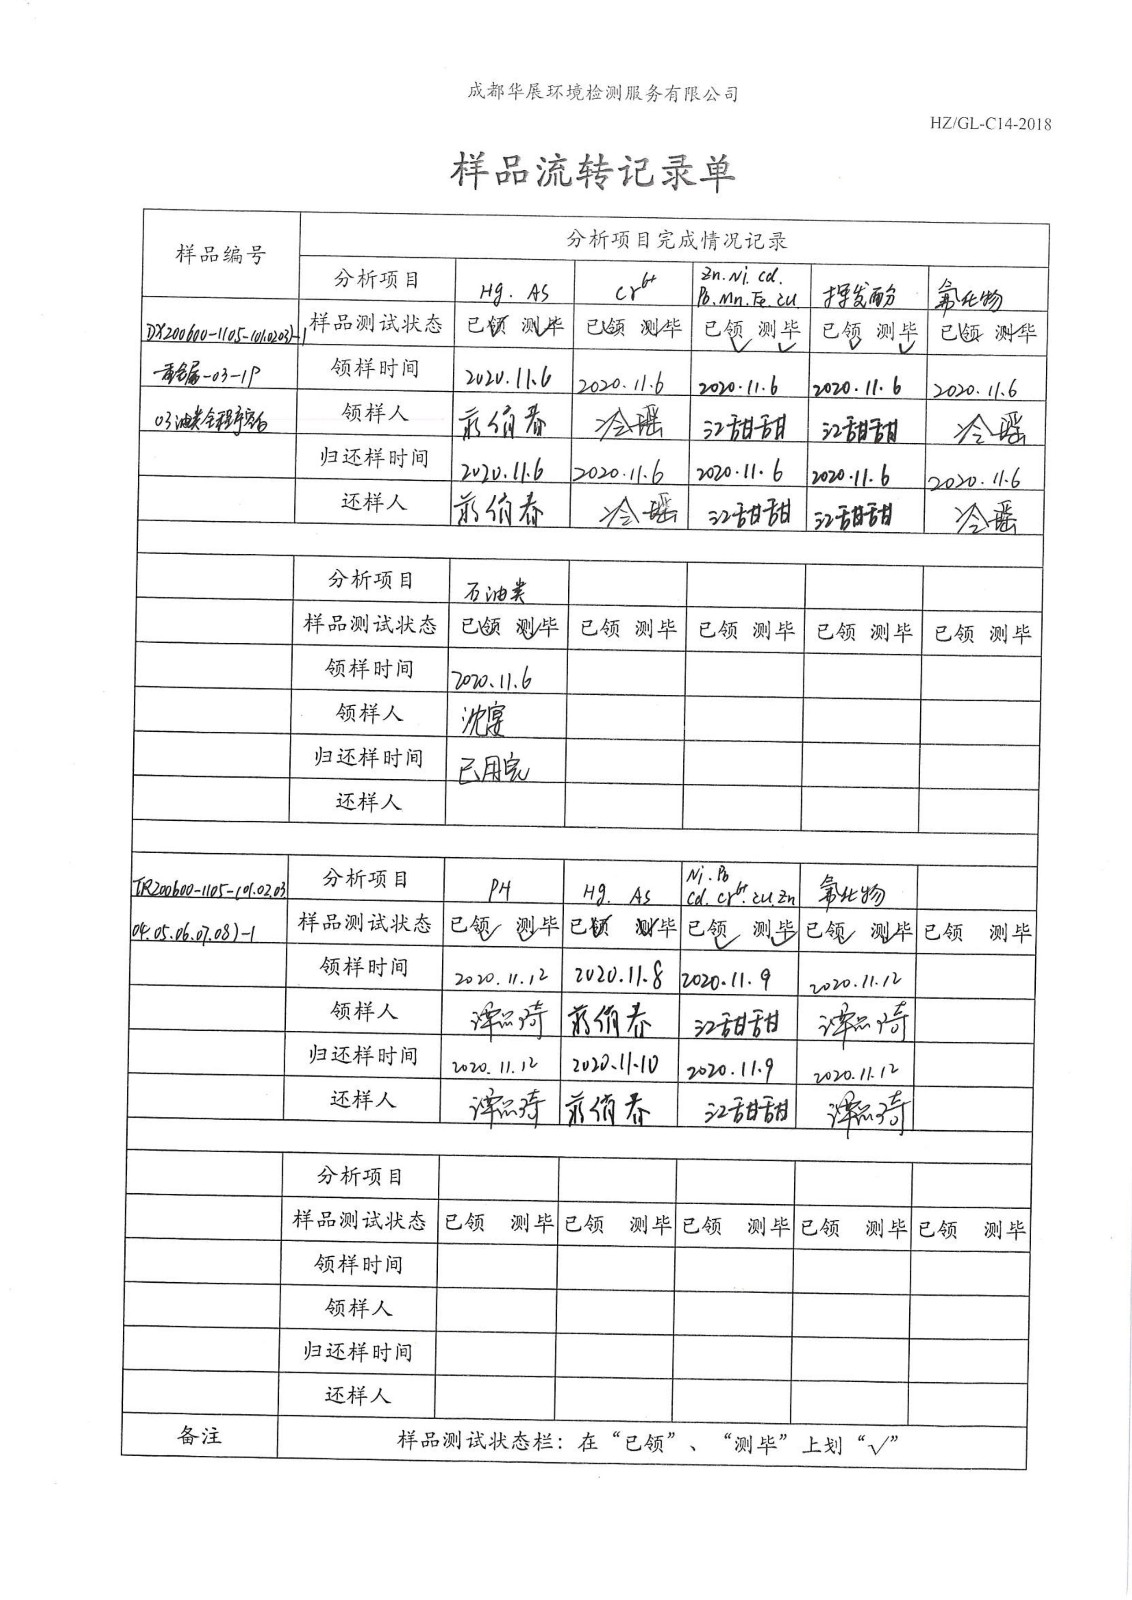 成都华展环境检测服务有限公司
HZ/GL-C14-2018
样品流转记录单
样品编号 分析项目完成情况记录
分析项目 Hg. As Cr6+ Zn.Ni.Cd. Pb.Mn.Fe.Cu 挥发酚 氟化物
DX200600-1105-(01.02.03)-1 样品测试状态 已领 测毕 已领 测毕 已领 测毕 已领 测毕 已领 测毕
重金属-03-1P 领样时间 2020.11.6 2020.11.6 2020.11.6 2020.11.6 2020.11.6
03油类全程序空白 领样人 冷瑶 江甜甜 江甜甜 冷瑶
归还样时间 2020.11.6 2020.11.6 2020.11.6 2020.11.6 2020.11.6
还样人 冷瑶 江甜甜 江甜甜 冷瑶
分析项目 石油类
样品测试状态 已领 测毕 已领 测毕 已领 测毕 已领 测毕 已领 测毕
领样时间 2020.11.6
领样人 沈宴
归还样时间 已用完
还样人
TR200600-1105-(01.02.03 分析项目 PH Hg. As Ni.Pb Cd.Cr6+.Cu.Zn 氟化物
04.05.06.07.08)-1 样品测试状态 已领 测毕 已领 测毕 已领 测毕 已领 测毕 已领 测毕
领样时间 2020.11.12 2020.11.8 2020.11.9 2020.11.12
领样人 江甜甜
归还样时间 2020.11.12 2020.11.10 2020.11.9 2020.11.12
还样人 江甜甜
分析项目
样品测试状态 已领 测毕 已领 测毕 已领 测毕 已领 测毕 已领 测毕
领样时间
领样人
归还样时间
还样人
备注 样品测试状态栏：在“已领”、“测毕”上划“√”